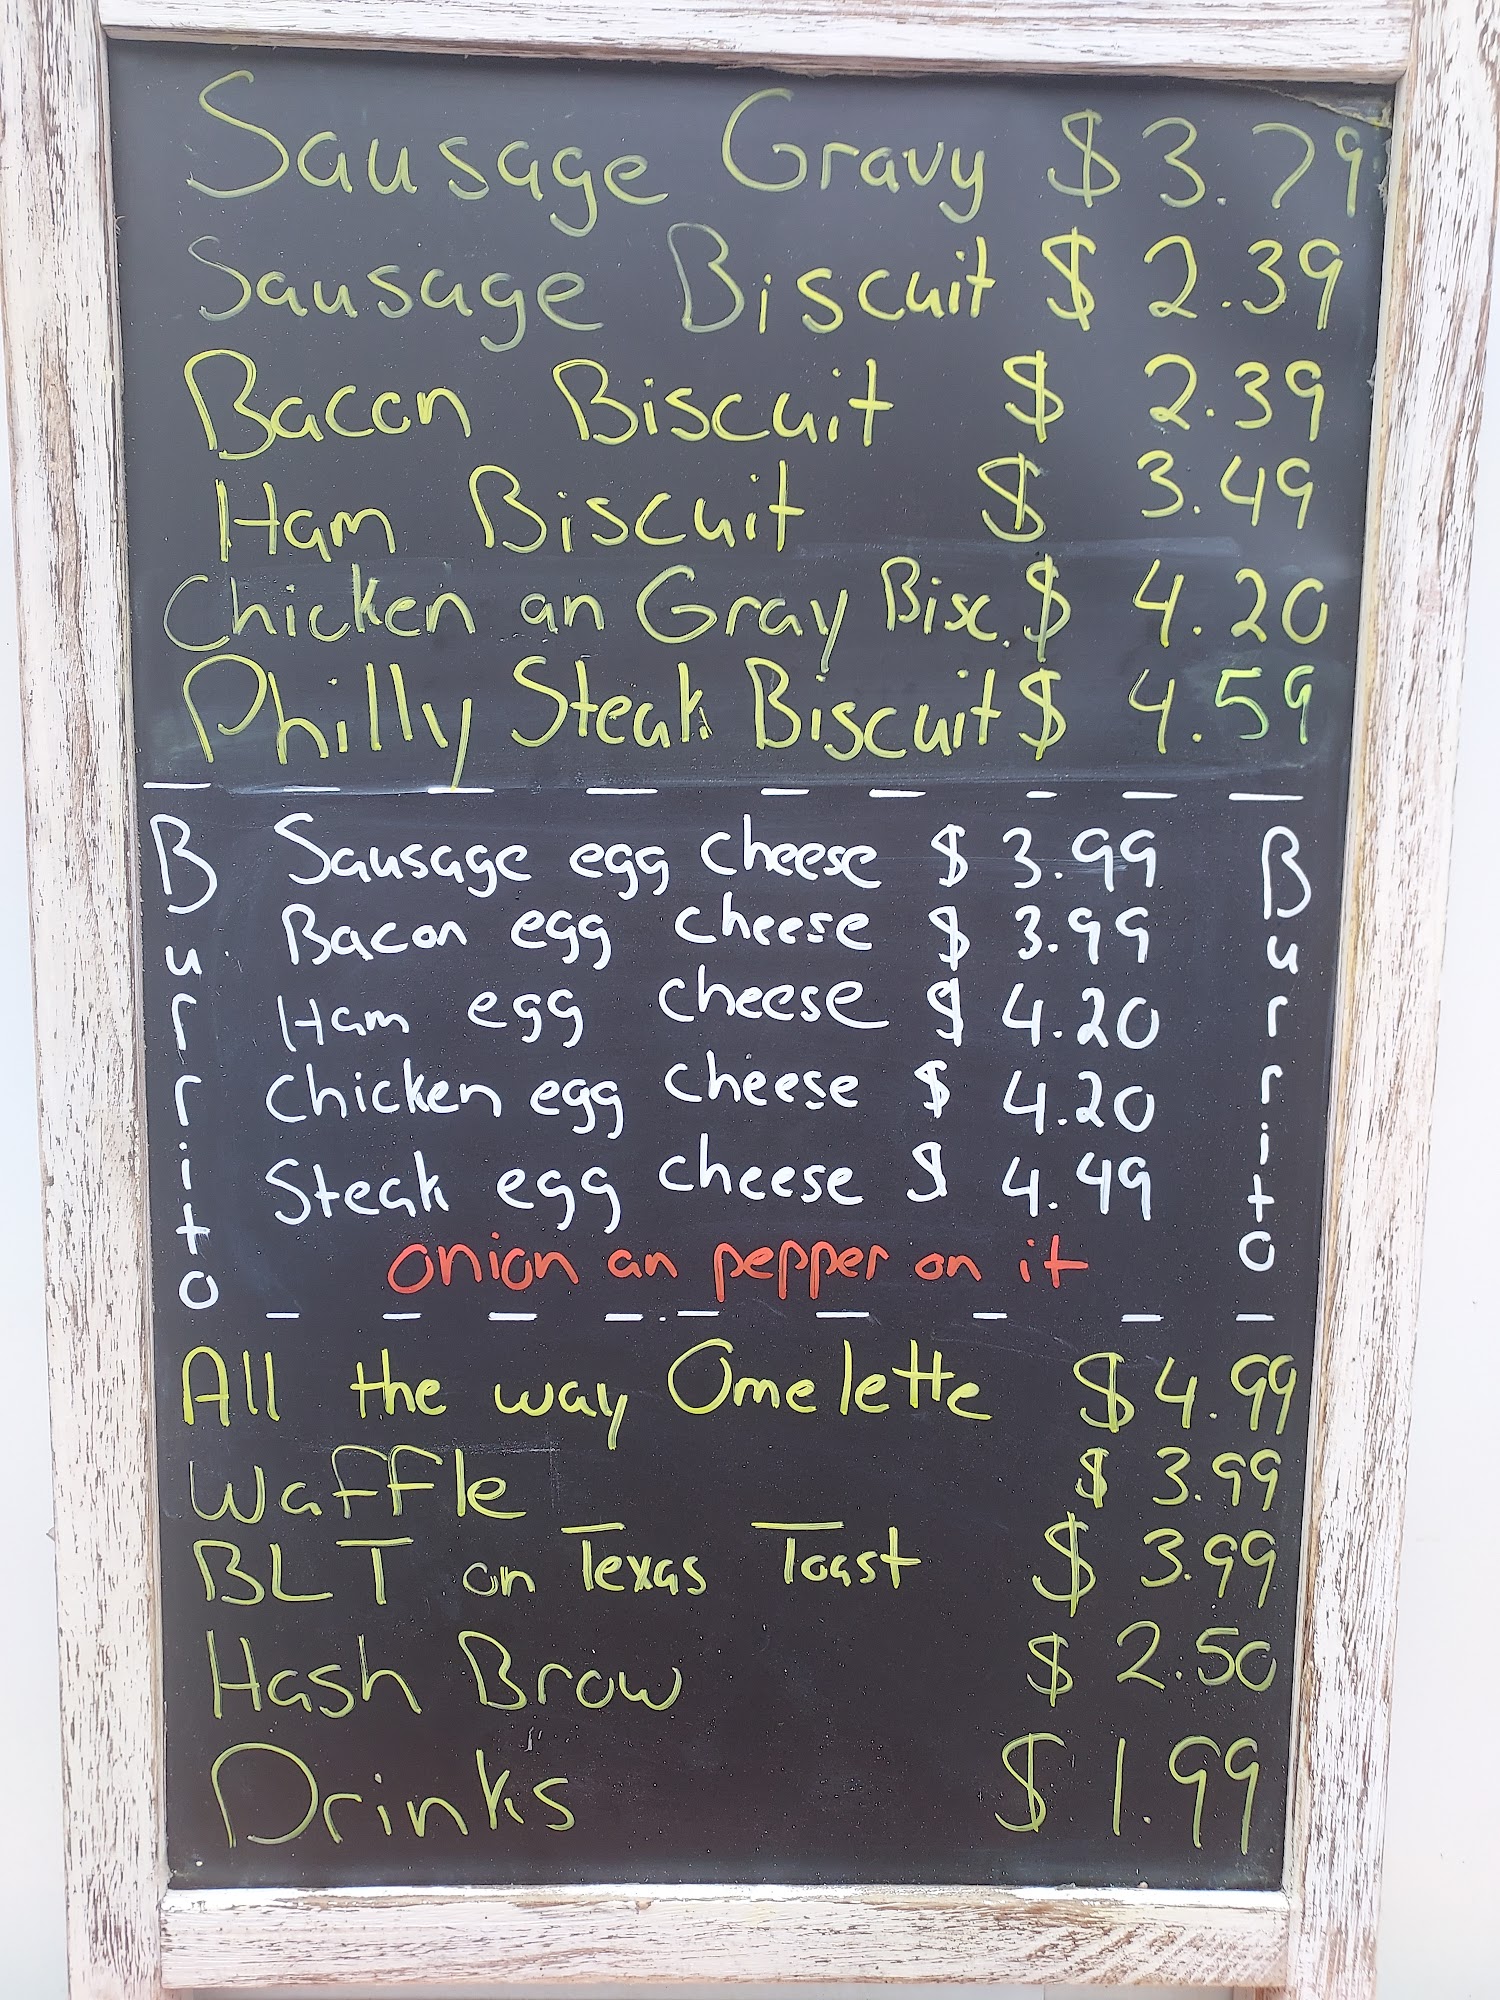 Sausage Gravy $ 3.79
Sausage Biscuit $ 2.39
Bacon Biscuit $ 2.39
Ham Biscuit $ 3.49
Chicken an Gray Bisc. $ 4.20
Philly Steak Biscuit $ 4.59
Burrito
Sausage egg cheese $ 3.99
Bacon egg cheese $ 3.99
Ham egg cheese $ 4.20
Chicken egg cheese $ 4.20
Steak egg cheese $ 4.49
onion an pepper on it
Burrito
All the way Omelette $ 4.99
Waffle $ 3.99
BLT on Texas Toast $ 3.99
Hash Brow $ 2.50
Drinks $ 1.99